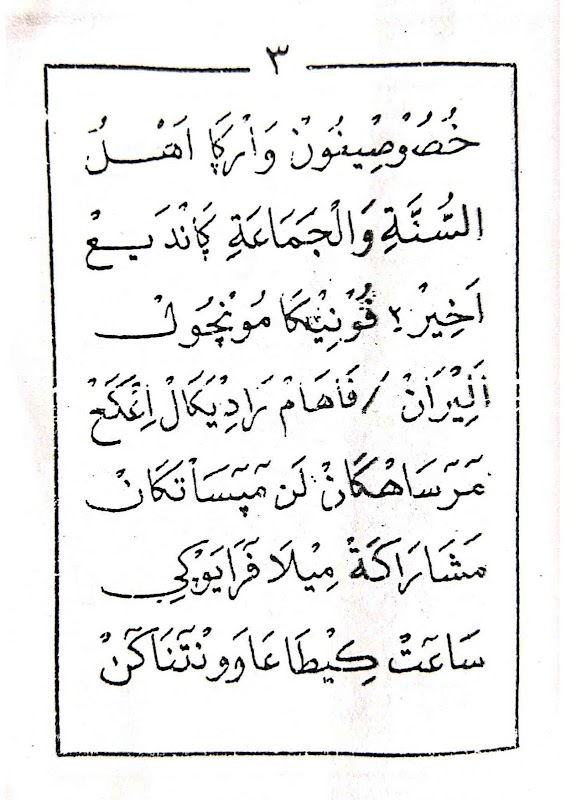 خُصُوْصِيْفُوْنْ وَارْڮَا اَهْـلُ
السُّنَّةِ وَالْجَمَاعَةِ ڮَانْدَيـعْ
اَخِيْرْ٢ فُوْنِيْكَا مُوْنْچُولْ
اَلِيْرَانْ / فَاهَامْ رَادِيْكَالْ اِغْكَعْ
مٓرٓسَاهْكَانْ لَن مٓيٓسَاتْكَانْ
مَشَارَاكَةْ مِيْلَا فَرَايَوْڮِي
سَاعٓتْ كِيْطَا عَاوَونْتٓنَاكٓنْ